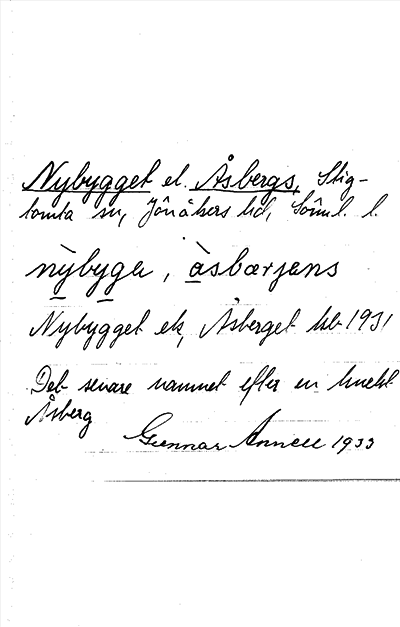 Nybygget el. Åsbergs, Stig-
tomta sn, Jönåkers hd, Söml. l.
nỳbyga, àsbærjens
Nybygget el., Åsberget hb 1931
Det senare namnet efter en knekt
Åsberg
Gunnar Annell 1933